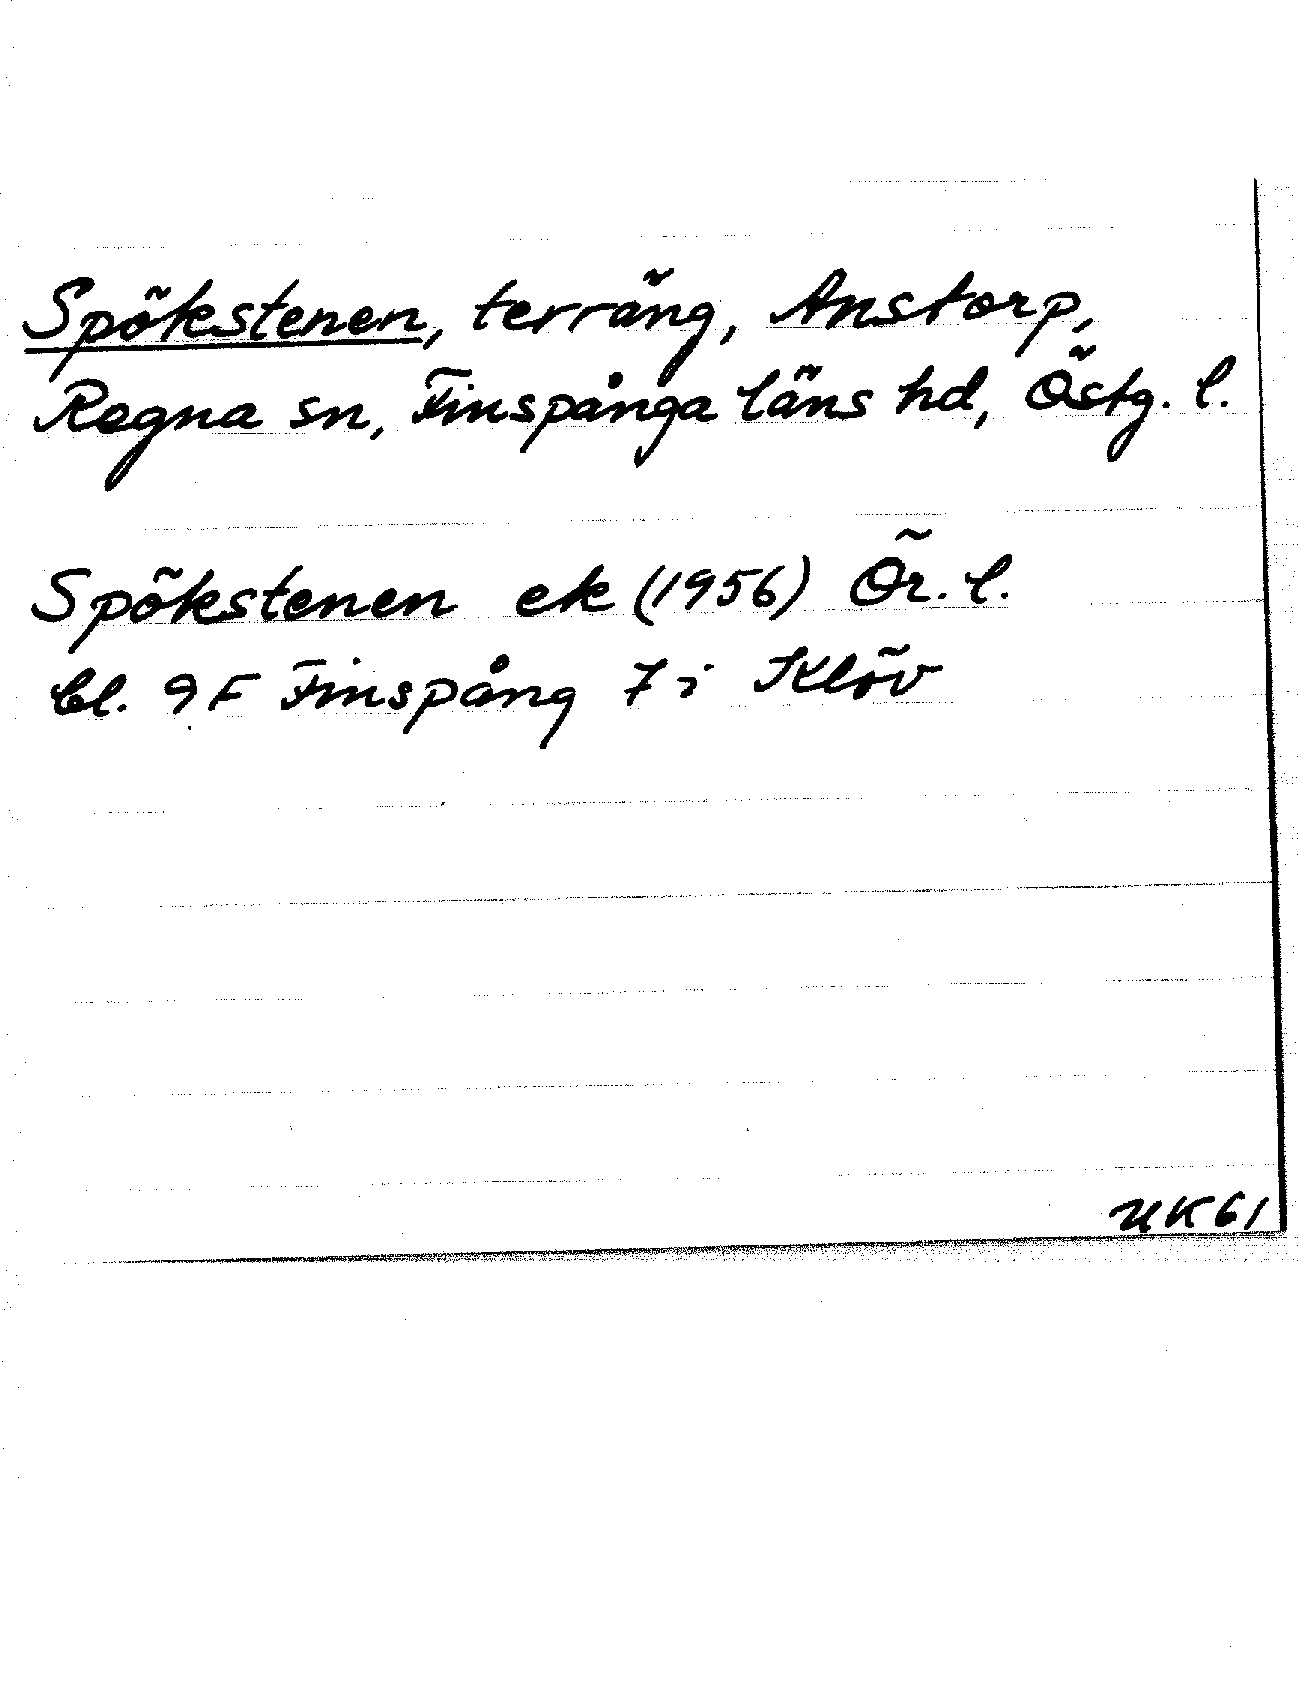 Spökstenen, terräng, Anstorp,
Regna sn, Finspånga läns hd, Östg. l.
Spökstenen ek (1956) Ör. l.
bl. 9 F Finspång 7 i Klöv
UK61